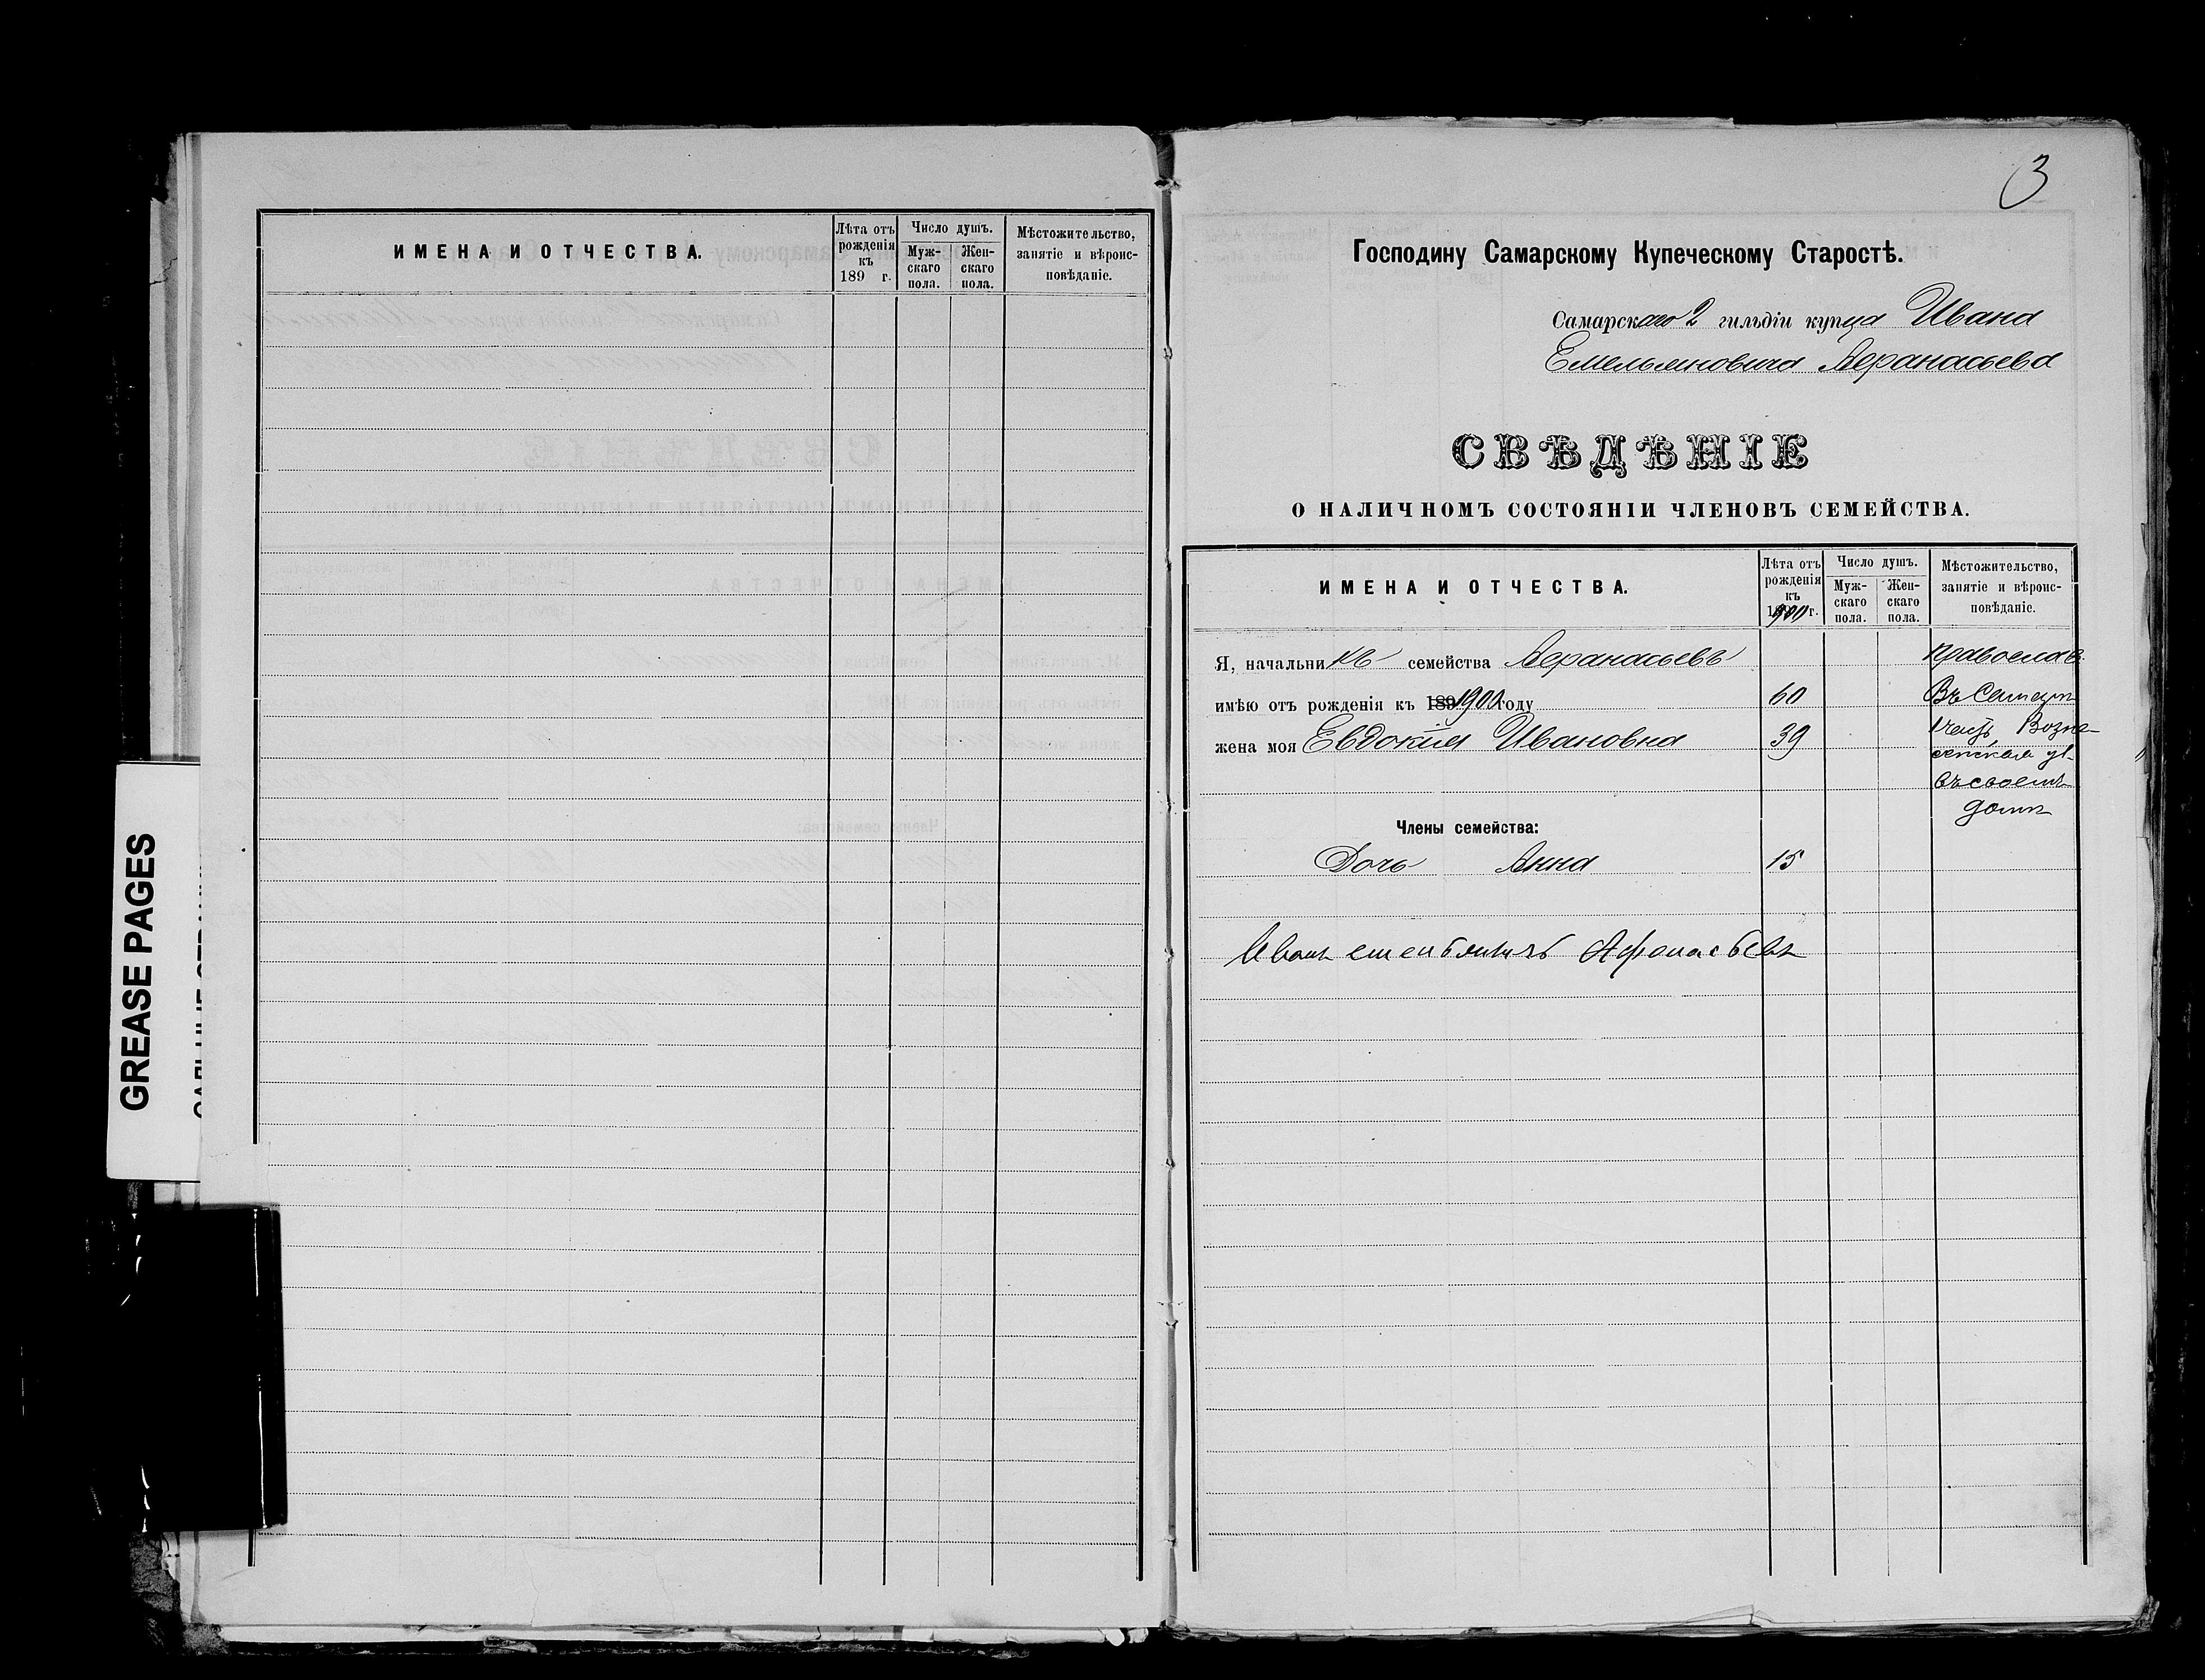 GREASE PAGES
ИМЕНА И ОТЧЕСТВА.
Лѣта отъ рожденія къ 189 г.
Число душъ.
Мужскаго пола.
Женскаго пола.
Мѣстожительство, занятіе и вѣроисповѣданіе.
3
Господину Самарскому Купеческому Старостѣ.
Самарскаго 2 гильдіи купца Ивана
Емельяновича Афанасьева
СВѢДѢНІЕ
О НАЛИЧНОМЪ СОСТОЯНІИ ЧЛЕНОВЪ СЕМЕЙСТВА.
ИМЕНА И ОТЧЕСТВА.
Лѣта отъ рожденія къ 1900 г.
Число душъ.
Мужскаго пола.
Женскаго пола.
Мѣстожительство, занятіе и вѣроисповѣданіе.
Я, начальникъ семейства Афанасьевъ Православ.
имѣю отъ рожденія къ 189 1900 году 60 Въ Самарѣ
жена моя Евдокія Ивановна 39 1 часть Возне-
сенская ул.
въ своемъ
домѣ
Члены семейства:
Дочь Анна 15
Иванъ Афонасьевъ